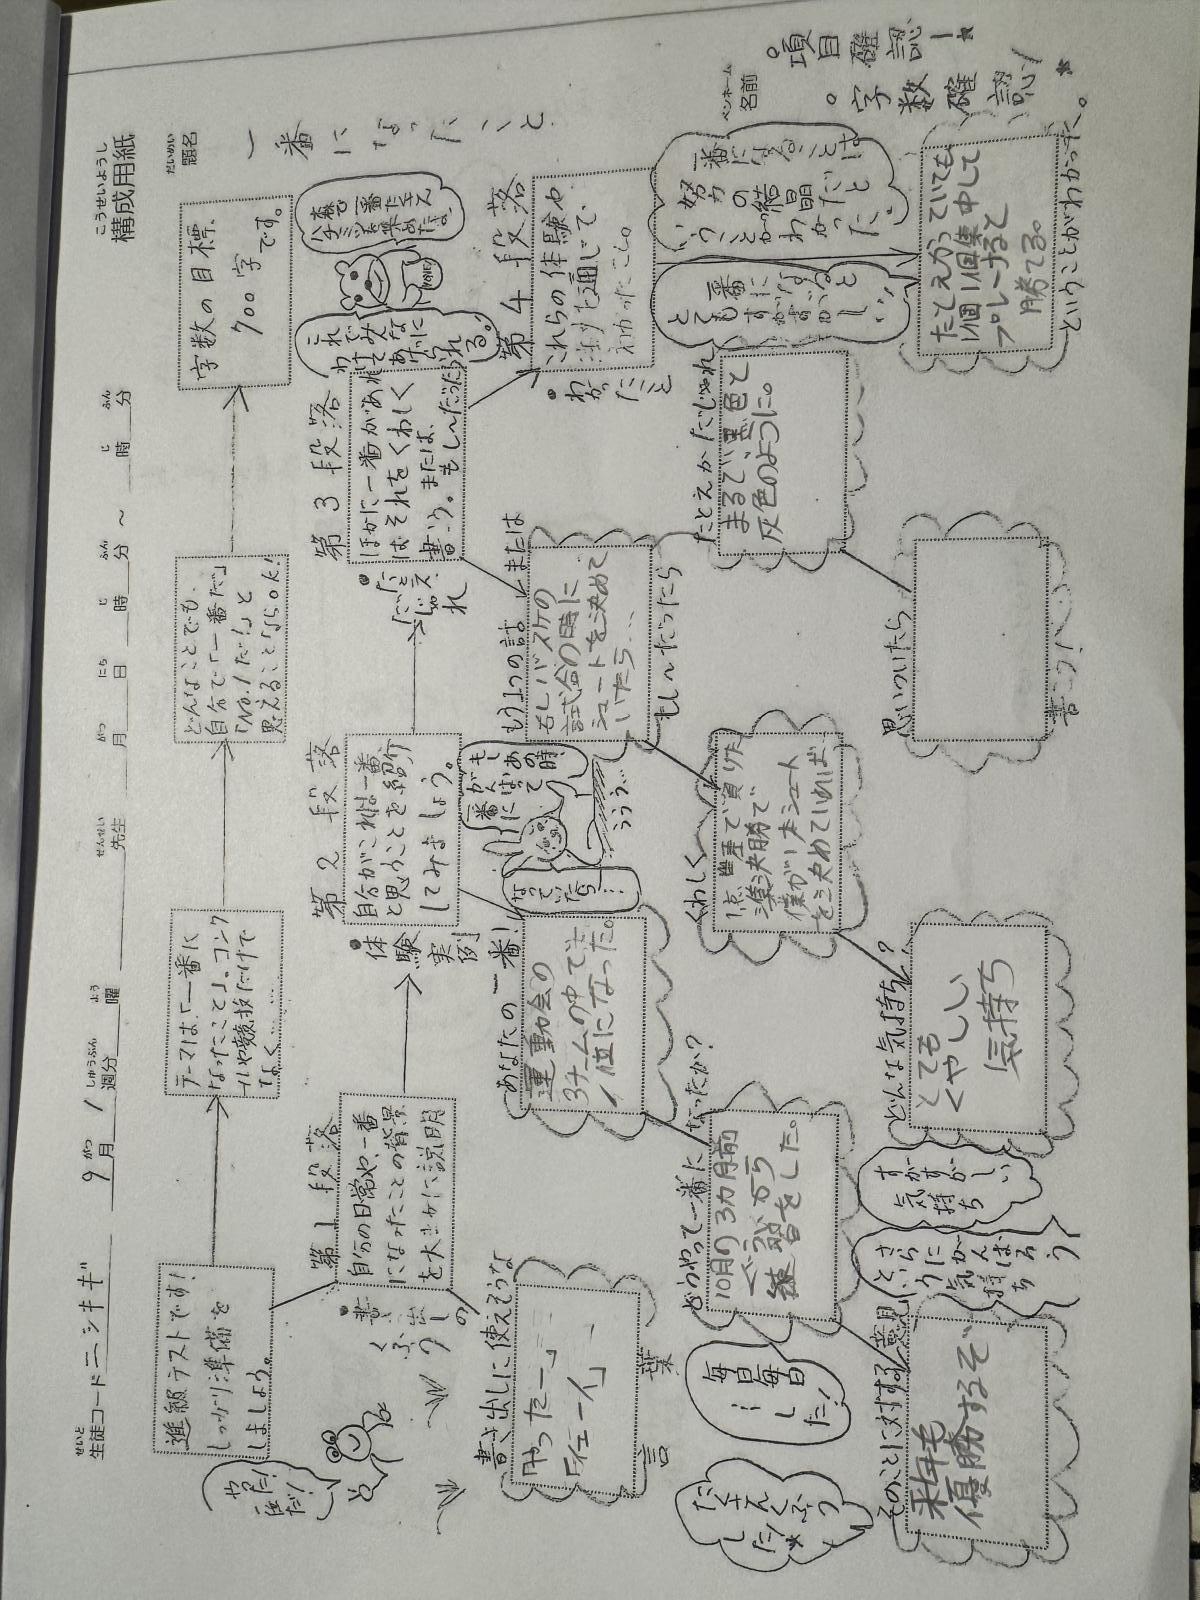 構成用紙
こうせいようし
生徒コード ニシキギ
せいと
9月1週分
がつ しゅうぶん
曜
よう
先生
せんせい
月 日 時 分 ～ 時 分
がつ にち じ ふん じ ふん
題名
だいめい
一番になったこと
ペンネーム
名前
進級テストです！
しっかり準備を
しましょう。
テーマは「一番に
なったこと」。コンク
ールや競技だけで
なく……
どんなことでも、
自分で「一番だ」
「No.1だ！」と
思えることならOK！
字数の目標、
700字
です。
やった！
だ！
第1段落
自分の日常や、一番
になったことの背景
を大まかに説明
・書き出しの
くふう
書き出しに使えそうな
言葉
「やったー」
「イェーイ」
第2段落
自分がこれは一番
と思うことを紹介
してみましょう。
・体験実例
あなたの一番！
運動会の
3チームの中で
1位になった。
もし
あの時
がんばって
一番に
なっていたら
…
ううう…
どうやって一番に
なったか？
10月の3カ月前
ぐらいから
練習をした。
毎日毎日
…
した！
たくさん
くふう
した！
そのことに対する意見
来年も
優勝するぞ
すがすがしい
気持ち
さらに
がんばろう
という
気持ち
第3段落
ほかに一番があれ
ばそれをくわしく
書こう。または、
もし～だったら
・「だったら」
もう1つの話 または
もし～だったら
もしバスケの
試合の時に
シュートを決めて
いたら…
くわしく
1点差で負けた
準決勝で
僕が1本シュート
を決めていれば…
どんな気持ち？
とても
くやしい
気持ち
たとえか だじゃれ
まるで黒色と
灰色のように。
思いついたら
書こう！
これで
みんな
あっと
われる。
森で
一番たくさん
ハチミツを
集めたよ。
HONEY
第4段落
これらの体験や
話を通じて、
わかったこと。
・わかったこと
一番に
なると
とても
すがすがしい
一番になることは
努力の結晶だと
いうことが
わかった。
たとえ勝っていても
1個1個集中して
プレーすると
勝てる。
ということがわかった。
・項目確認！
・字数確認！